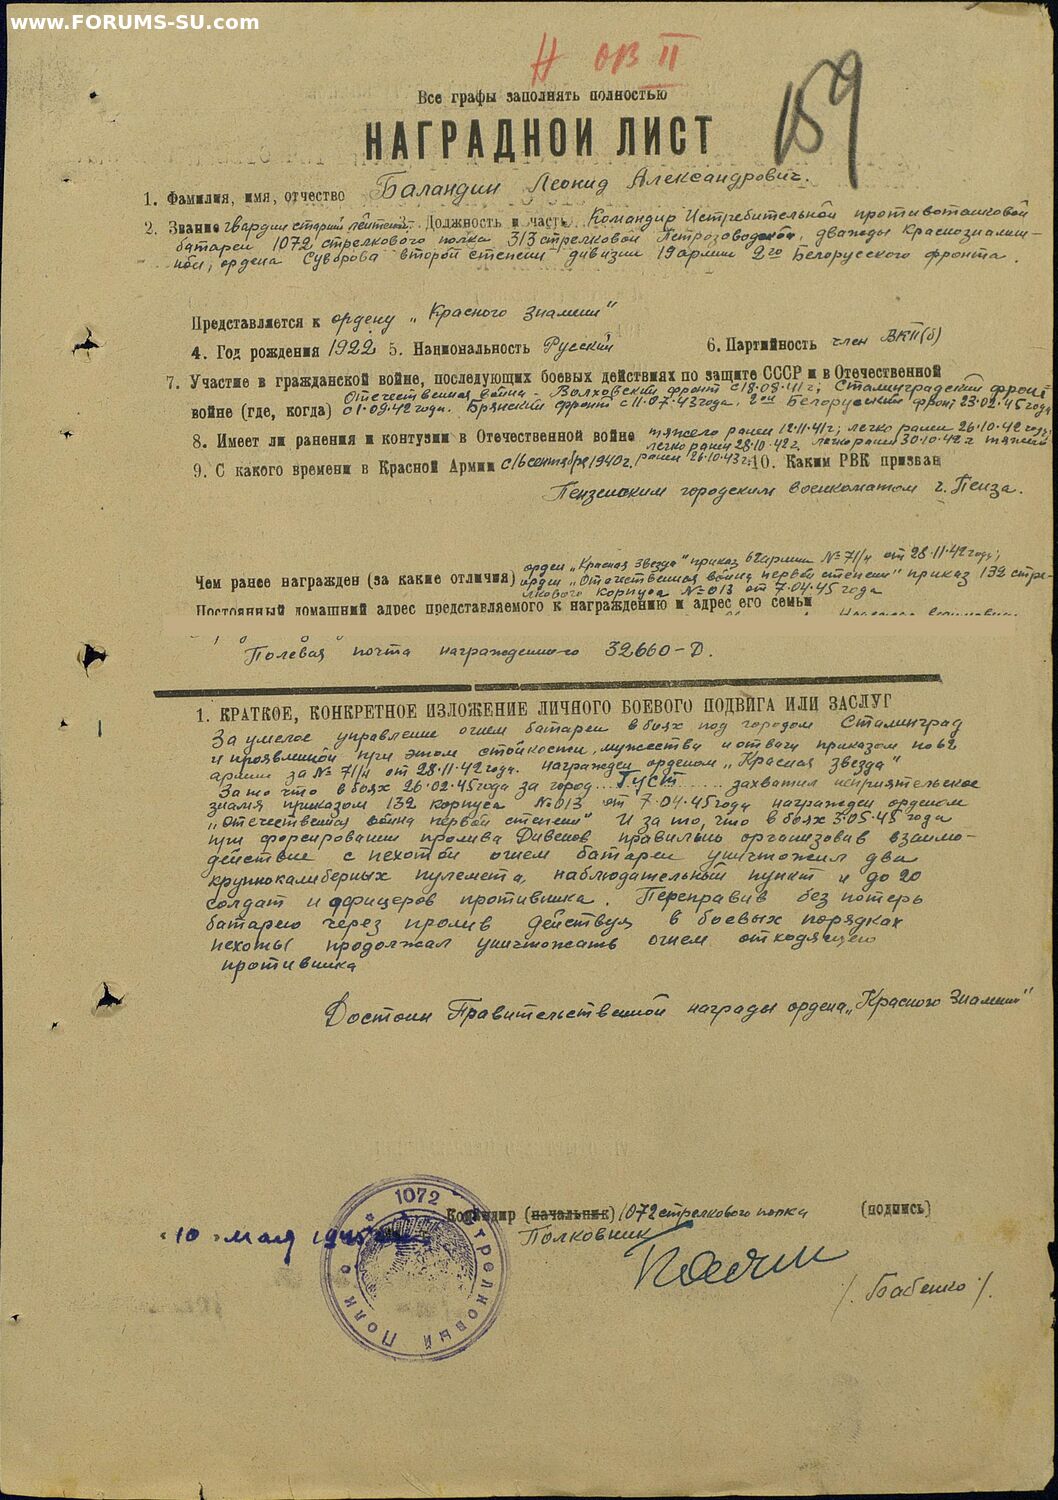 www.FORUMS-SU.com
Н ОВ II
159
Все графы заполнять полностью
НАГРАДНОЙ ЛИСТ
1. Фамилия, имя, отчество Баландин Леонид Александрович.
2. Звание гвардии старший лейтенант 3. Должность и часть Командир Истребительной противотанковой
батареи 1072 стрелкового полка 313 стрелковой Петрозаводской, дважды Краснознамен-
ной, ордена Суворова второй степени дивизии 19 армии 2го Белорусского фронта.
Представляется к ордену „Красного Знамени"
4. Год рождения 1922 5. Национальность Русский 6. Партийность член ВКП(б)
7. Участие в гражданской войне, последующих боевых действиях по защите СССР и в Отечественной
Отечественная война - Волховский фронт с 18.08.41г; Сталинградский фронт
войне (где, когда) с 1.09.42 года. Брянский фронт с 11.07.43 года. 2ой Белорусский фронт 23.02.45 года
8. Имеет ли ранения и контузии в Отечественной войне тяжело ранен 12.11.41г; легко ранен 26.10.42 году;
легко ранен 28.10.42г. легко ранен 30.10.42г тяжело
9. С какого времени в Красной Армии с 16 сентября 1940г. ранен 26.10.43г. 10. Каким РВК призван
Пензенским городским военкоматом г. Пенза.
орден „Красная Звезда" приказ 62 армии №71/н от 28.11.42 году;
Чем ранее награжден (за какие отличия) орден „Отечественная война первой степени" приказ 132 стре-
лкового корпуса №013 от 7.04.45 года
Постоянный домашний адрес представляемого к награждению и адрес его семьи
Полевая почта награжденного 32660-Д.
1. КРАТКОЕ, КОНКРЕТНОЕ ИЗЛОЖЕНИЕ ЛИЧНОГО БОЕВОГО ПОДВИГА ИЛИ ЗАСЛУГ
За умелое управление огнем батареи в боях под городом Сталинград
и проявленной при этом стойкости, мужества и отваги приказом по 62
армии за №71/н от 28.11.42 года. награжден орденом „Красная Звезда"
За то что в боях 26.02.45 года за город Густ захватил неприятельское
знамя приказом 132 корпуса №013 от 7.04.45 года награжден орденом
„Отечественная война первой степени" И за то, что в боях 3.05.45 года
при форсировании пролива Дивенов правильно организовав взаимо-
действие с пехотой огнем батареи уничтожил два
крупнокалиберных пулемета, наблюдательный пункт и до 20
солдат и офицеров противника. Переправив без потерь
батарею через пролив действуя в боевых порядках
пехоты продолжал уничтожать огнем отходящего
противника
Достоин Правительственной награды ордена „Красного Знамени"
Командир (начальник) 1072 стрелкового полка (подпись)
„10" мая 1945 Полковник
/. Бабенко /.
1072 Стрелковый Полк